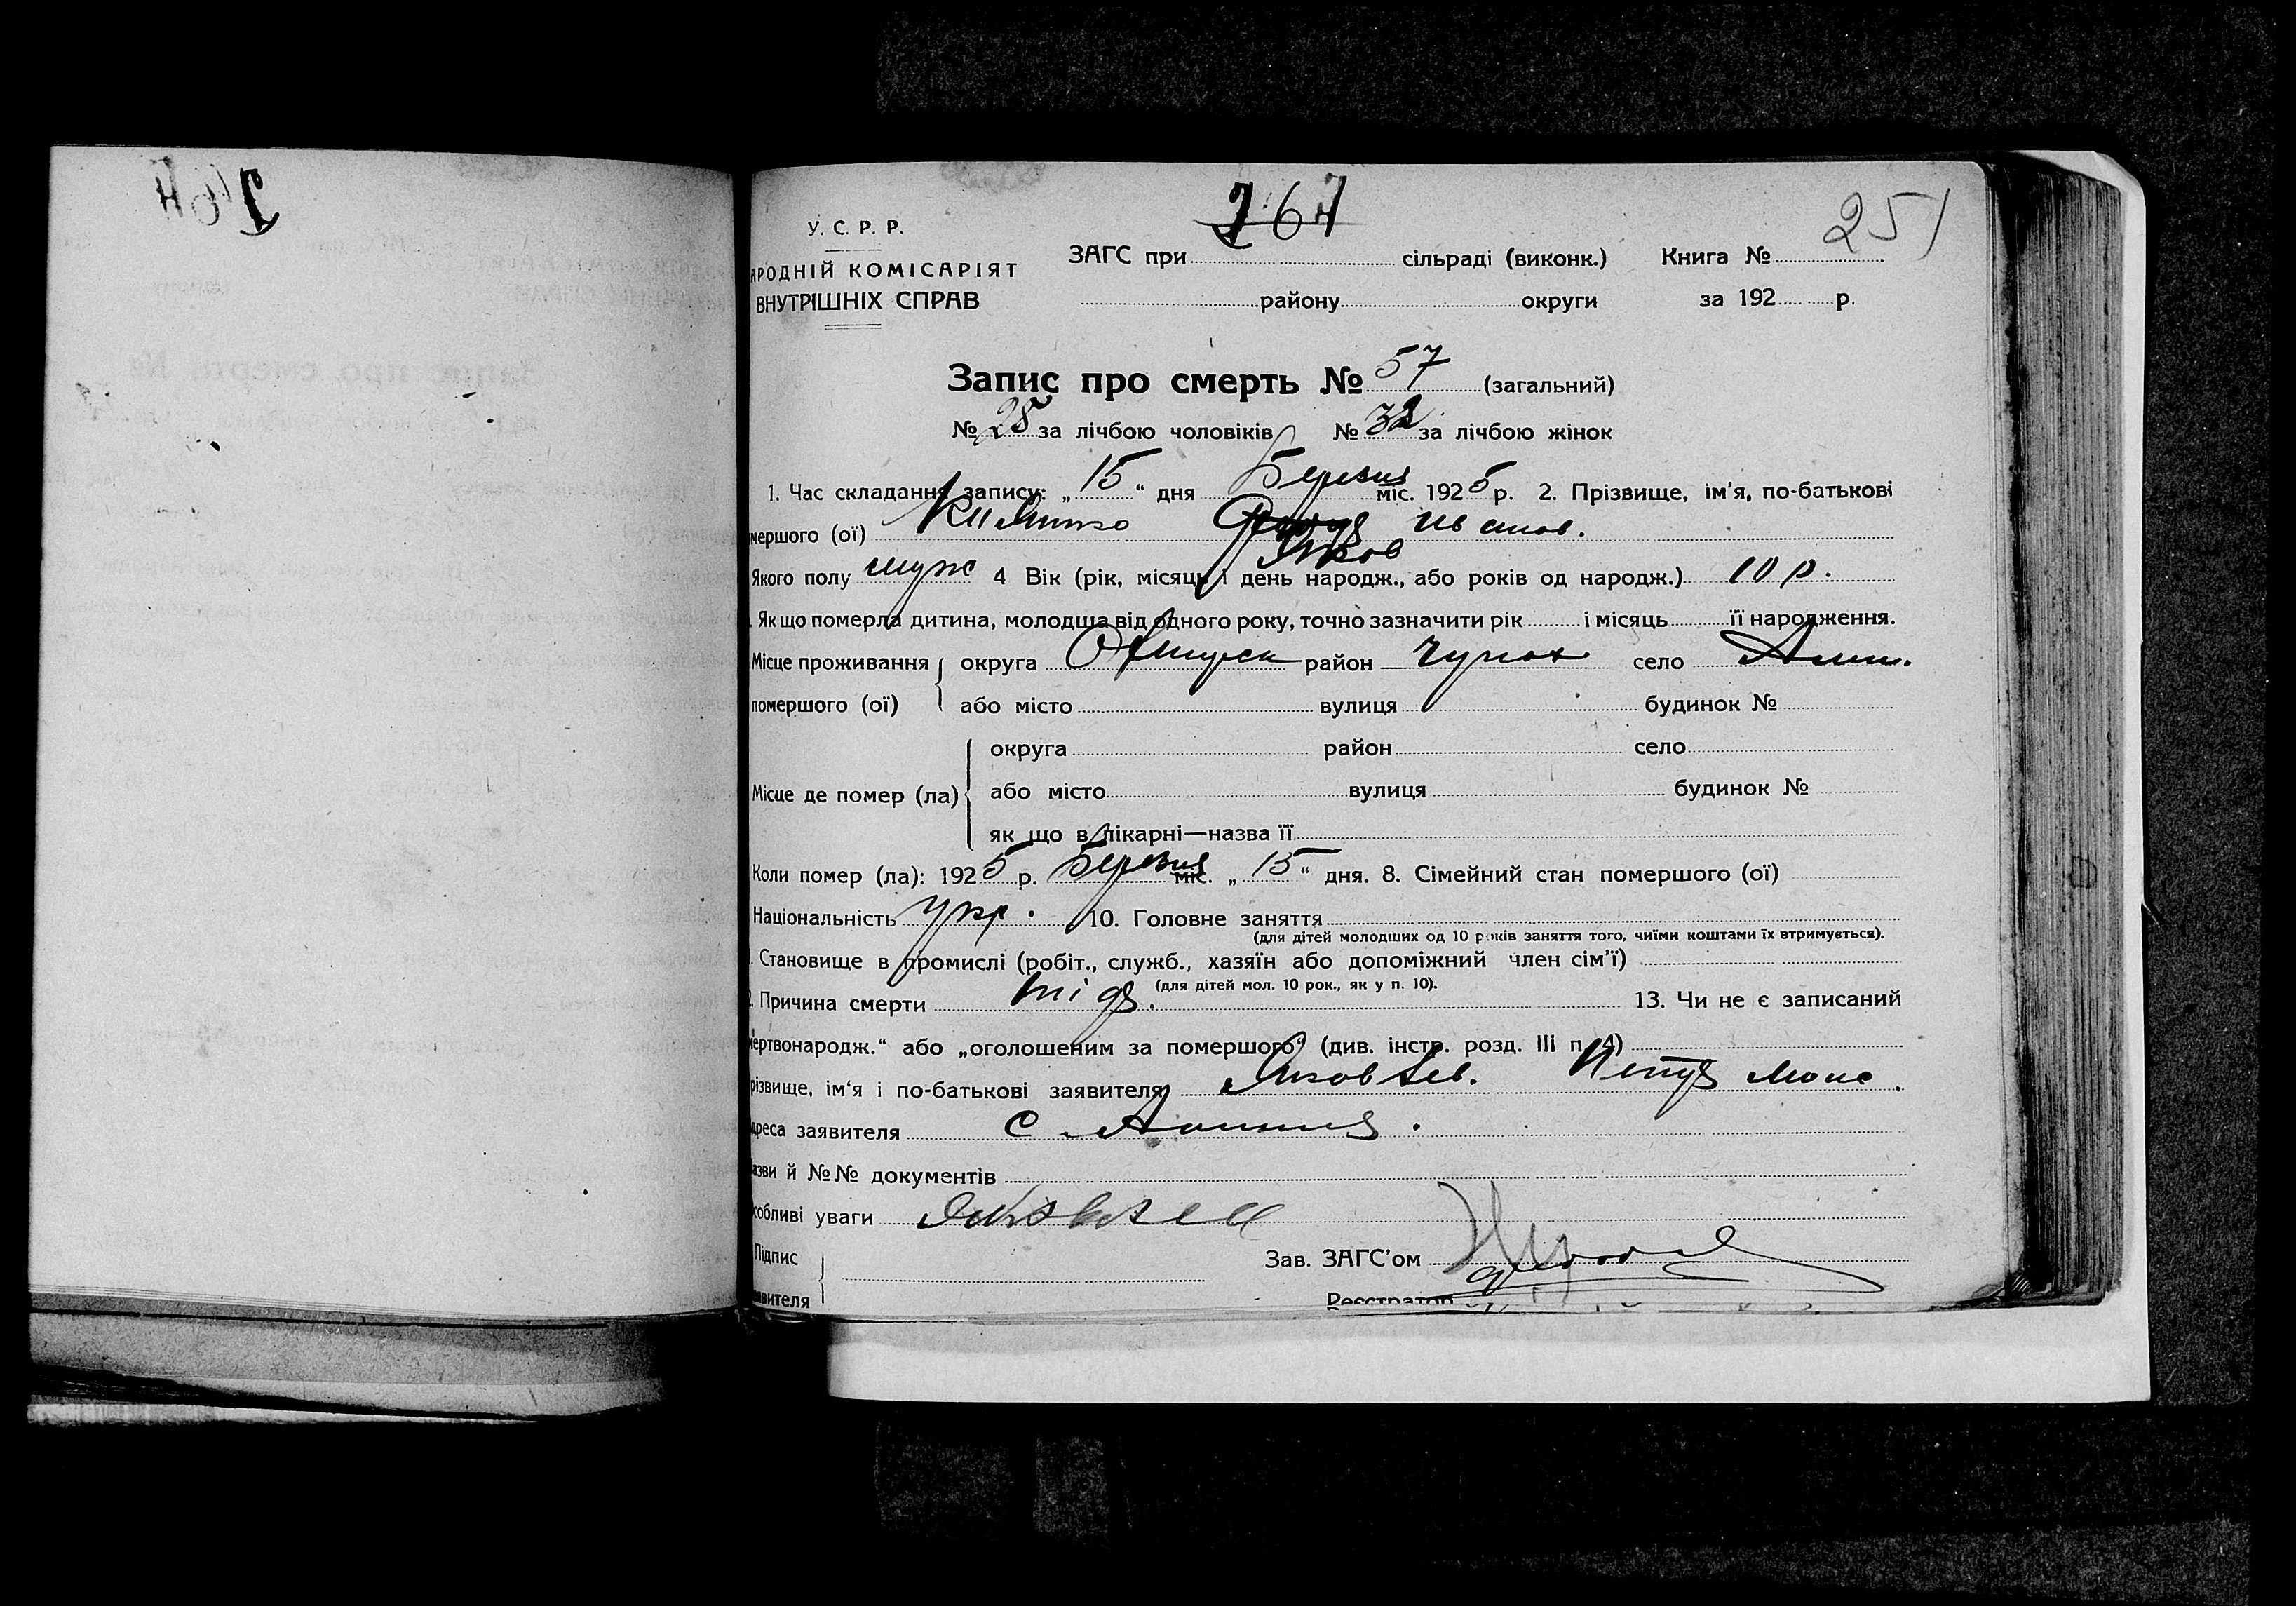 251
У. С. Р. Р.
АРОДНІЙ КОМІСАРІЯТ
ВНУТРІШНІХ СПРАВ
ЗАГС при сільраді (виконк.) Книга №
району округи за 192 р.
Запис про смерть № 57 (загальний)
№ 25 за лічбою чоловіків № 32 за лічбою жінок
1. Час складання запису: „ 15 “ дня Березня міс. 1925 р. 2. Прізвище, ім'я, по-батькові
мершого (ої) Иванов.
Яков
Якого полу муж 4 Вік (рік, місяць і день народж., або років од народж.) 10 р.
. Як що померла дитина, молодша від одного року, точно зазначити рік і місяць її народження.
Місце проживання округа район село
помершого (ої) або місто вулиця будинок №
округа район село
Місце де помер (ла) або місто вулиця будинок №
як що в лікарні—назва її
Коли помер (ла): 1925 р. Березня міс. „ 15 “ дня. 8. Сімейний стан помершого (ої)
Національність укр. 10. Головне заняття
(для дітей молодших од 10 років заняття того, чиїми коштами їх втримується).
. Становище в промислі (робіт., служб., хазяїн або допоміжний член сім'ї)
(для дітей мол. 10 рок., як у п. 10).
2. Причина смерти 13. Чи не є записаний
мертвонародж.“ або „оголошеним за помершого“ (див. інстр. розд. III п. 4)
різвище, ім'я і по-батькові заявителя
дреса заявителя с
азви й №№ документів
собливі уваги
Підпис Зав. ЗАГС'ом
явителя Реєстратор